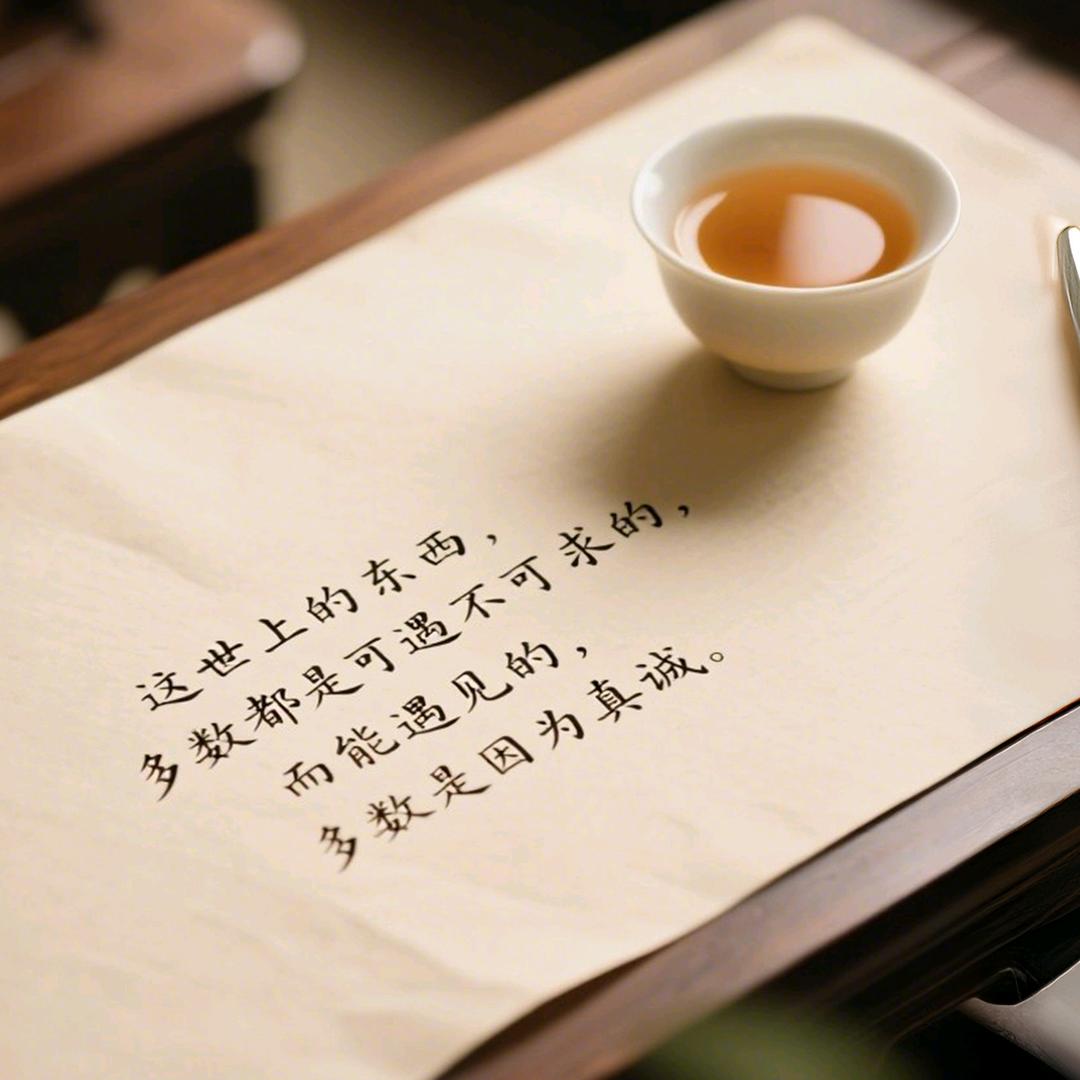 这世上的东西，
多数都是可遇不可求的，
而能遇见的，
多数是因为真诚。